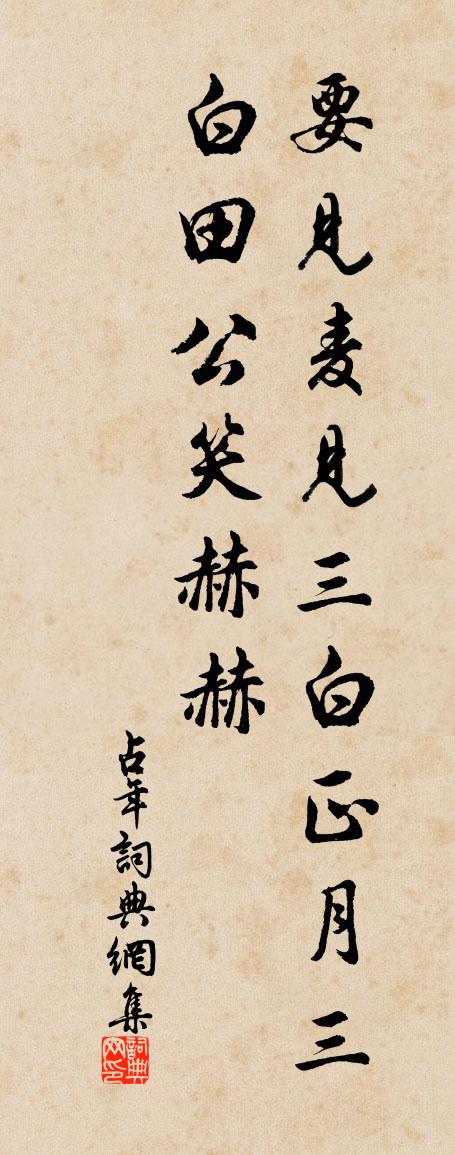 要見麦見三白正月三
白田公笑赫赫
占年詞典網集
詞典网印